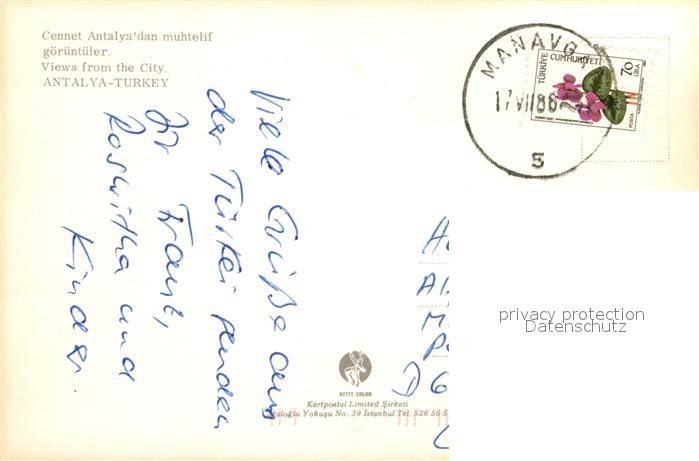 Cennet Antalya'dan muhtelif
görüntüler.
Views from the City.
ANTALYA-TURKEY
MANAVG
17 VII 86
S
TÜRKİYE CUMHURİYETİ
70
POSTA
Viele Grüße aus
der Türkei senden
Ihr Frank,
Roswitha und
Kinder.
H
Al
M
P
D 6
privacy protection
Datenschutz
HITIT COLOR
Kartpostal Limited Şirketi
aloğlu Yokuşu No. 39 İstanbul Tel. 526 56 5